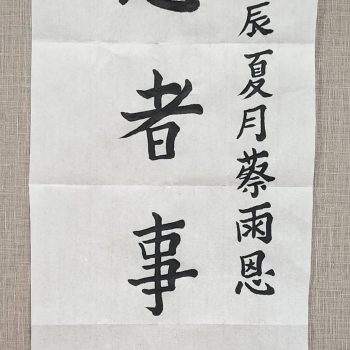 辰夏月蔡雨恩
者事